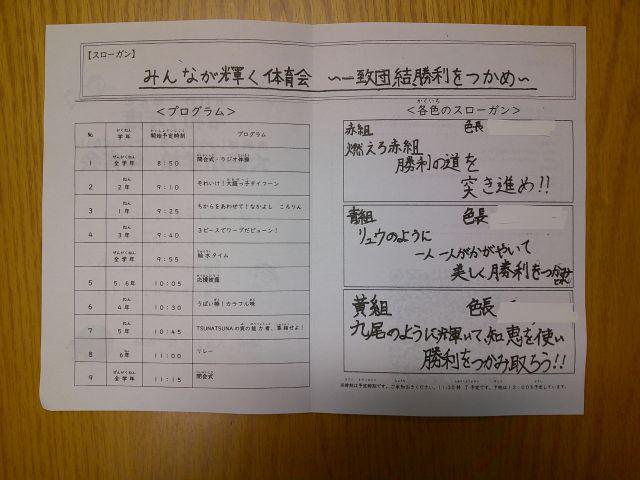 【スローガン】
みんなが輝く体育会 ～一致団結勝利をつかめ～
＜プログラム＞
№ 学年 開始予定時刻 プログラム
1 全学年 8:50 開会式・ラジオ体操
2 2年 9:10 それいけ！大龍っ子タイフーン
3 1年 9:25 ちからをあわせて！なかよし ころりん
4 3年 9:40 3ピースでワープだピョーン！
全学年 9:55 給水タイム
5 5,6年 10:05 応援披露
6 4年 10:30 うばい棒！カラフル味
7 5年 10:45 TSUNATSUNAの実の能力者、集結せよ！
8 6年 11:00 リレー
9 全学年 11:15 閉会式
＜各色のスローガン＞
赤組 色長
燃えろ赤組
勝利の道を
突き進め!!
青組 色長
リュウのように
一人一人がかがやいて
美しく勝利をつかみ
とれ
黄組 色長
九尾のように輝いて、知恵を使い
勝利をつかみ取ろう!!
※時刻は予定時刻です。ご承知おきください。11:30終了予定です。下校は12:00を予定しています。